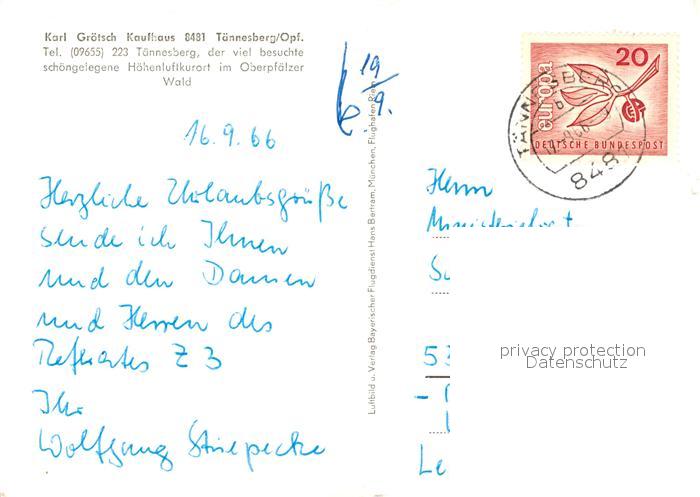 Karl Grötsch Kaufhaus 8481 Tännesberg/Opf.
Tel. (09655) 223 Tännesberg, der viel besuchte
schöngelegene Höhenluftkurort im Oberpfälzer
Wald
19/9.
16.9.66
Herzliche Urlaubsgrüße
sende ich Ihnen
und den Damen
und Herren des
Referates Z 3
Ihr
Wolfgang
Luftbild u. Verlag Bayerischer Flugdienst Hans Bertram, München, Flughafen Riem
20
europa
DEUTSCHE BUNDESPOST
TÄNNESBERG
b
8481
Herrn
53
privacy protection
Datenschutz